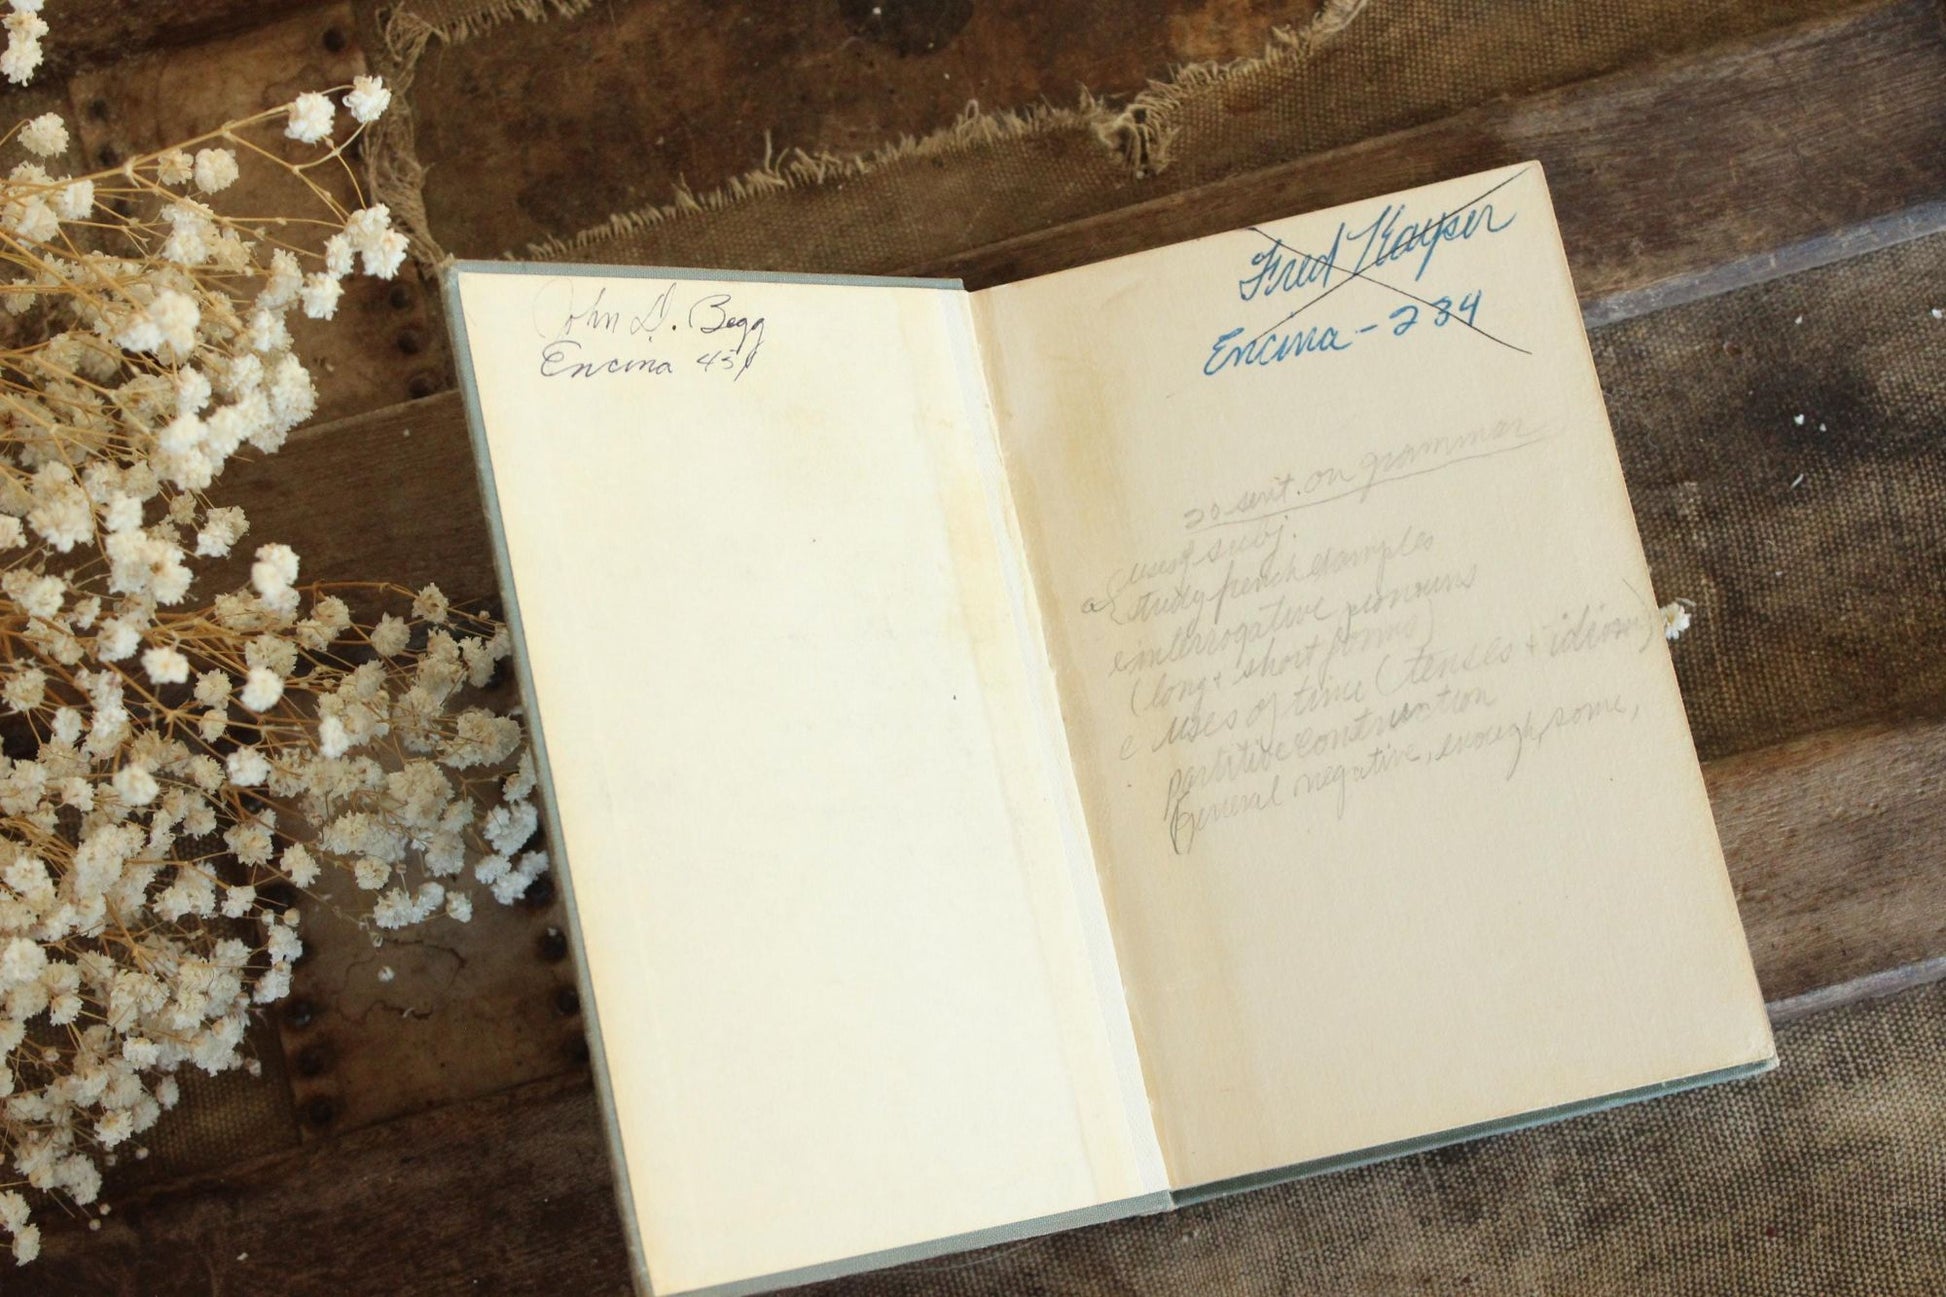 John D. Begg
Encina 451
Fred Kayser
Encina - 234
20 sent. on grammar
uses of subj.
a study french examples
interrogative pronouns
(long + short forms)
c uses of time (tenses + idioms)
partitive construction
General negative, enough, some,